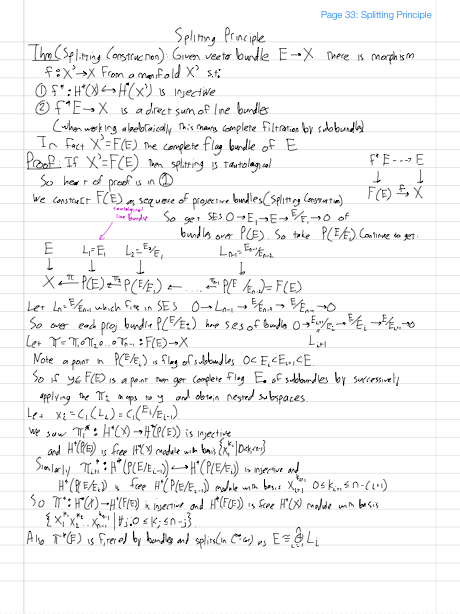 Page 33: Splitting Principle
Splitting Principle
Thm (Splitting Construction): Given vector bundle E → X there is morphism
f: X' → X from a manifold X' s.t.
① f*: H*(X) ↪ H*(X') is injective
② f*E → X is a direct sum of line bundles
(when working algebraically this means complete filtration by subbundles)
In fact X' = F(E) the complete flag bundle of E
Proof: If X' = F(E) then splitting is tautological
So heart of proof is in ①
f*E ---> E
↓ ↓
F(E) →f X
We construct F(E) as sequence of projective bundles (Splitting Construction)
tautological line bundle
So get SES 0 → E₁ → E → E/E₁ → 0 of
bundles over P(E). So take P(E/E₁) Continue to get:
E L₁=E₁ L₂=E₂/E₁ Lₙ₋₁=Eₙ₋₁/Eₙ₋₂
↓ ↓ ↓ ↓
X ←π₁ P(E) ←π₂ P(E/E₁) ← ... ←πₙ₋₁ P(E/Eₙ₋₂) = F(E)
Let Lₙ = E/Eₙ₋₁ which fits in SES 0 → Lₙ₋₁ → E/Eₙ₋₂ → E/Eₙ₋₁ → 0
So over each proj bundle P(E/Eᵢ) have ses of bundles 0 → Eᵢ₊₁/Eᵢ → E/Eᵢ → E/Eᵢ₊₁ → 0
Let π = π₁∘π₂∘...∘πₙ₋₁: F(E) → X Lᵢ₊₁
Note a point in P(E/Eᵢ) is flag of subbundles 0 < Eᵢ < Eᵢ₊₁ < E
So if y ∈ F(E) is a point then get complete flag E. of subbundles by successively
applying the πᵢ maps to y and obtain nested subspaces.
Let xᵢ = c₁(Lᵢ) = c₁(Eᵢ/Eᵢ₋₁)
We saw π₁*: H*(X) → H*(P(E)) is injective
and H*(P(E)) is free H*(X) module with basis {x₁^k₁ | 0≤k₁≤n-1}
Similarly πᵢ₊₁*: H*(P(E/Eᵢ₋₁)) ↪ H*(P(E/Eᵢ)) is injective and
H*(P(E/Eᵢ)) is free H*(P(E/Eᵢ₋₁)) module with basis xᵢ₊₁^kᵢ₊₁ 0≤kᵢ₊₁≤n-(i+1)
So π*: H*(X) → H*(F(E)) is injective and H*(F(E)) is free H*(X) module with basis
{x₁^k₁ x₂^k₂ ... xₙ₋₁^kₙ₋₁ | ∀j. 0≤kⱼ≤n-j}.
Also π*(E) is filtered by bundles and splits (in C^∞ cat) as E ≅ ⊕ᵢ₌₁ⁿ Lᵢ